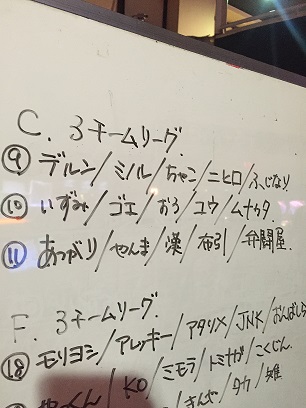 C. 3チームリーグ
⑨ デルン/ミノル/ちゃこ/ニヒロ/ふじなり
⑩ いずみ/ゴエ/おろ/ユウ/ムナカタ
⑪ あつがり/やんま/漢/布引/弁闘屋
F. 3チームリーグ.
⑱ モリヨシ/アレッキー/アタリメ/JNK/おんばしら
くん/KO/ミモラ/トミナガ/こくじん
/タカ/雄